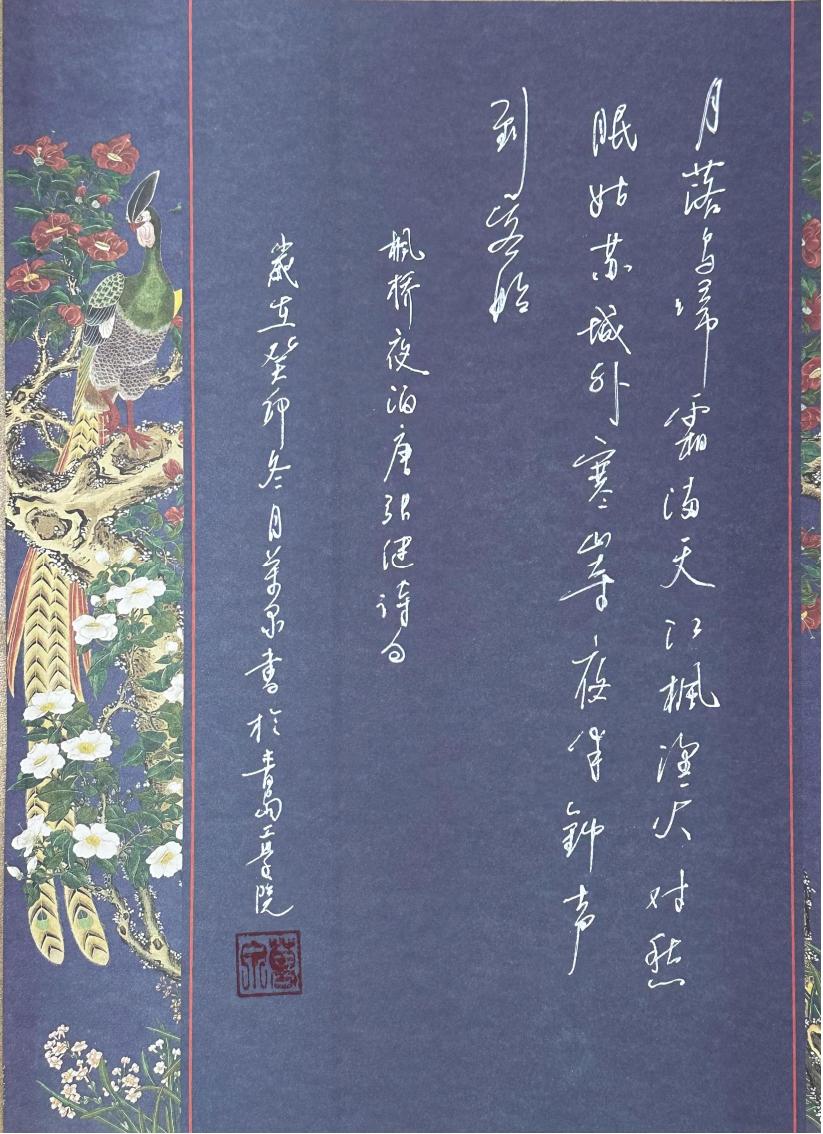 月落乌啼霜满天江枫渔火对愁
眠姑苏城外寒山寺夜半钟声
到客船
枫桥夜泊唐张继诗句
歲在癸卯冬月萬泉書於青岛工学院
萬泉